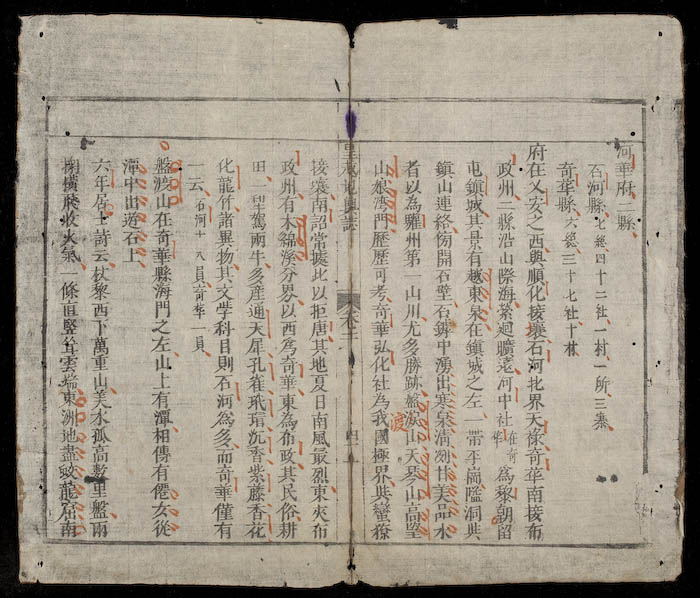 河華府二縣
石河縣七總四十二社一村一所三寨
奇華縣六總三十七社十村
府在乂安之西與順化接壤石河北界天祿奇華南接布
政州二縣浩山際海縈迴曠遠河中社在奇華為黎朝留
屯鎮城其景有越東泉在鎮城之左一帶平崗隘洞與
鎮山連絡傍開石壁石鏬中湧出寒泉清冽甘美品水
者以為驩州第一山川尤多勝跡盤渡山天琴山高望
山娘灣門歷歷可考奇華弘化社為我國極界與蠻獠
接壤南詔常據此以拒唐其地夏日南風最烈東夾布
政州有木綿溪分界以西為奇華東為布政其民俗耕
田一犂駕兩牛多産通天犀孔雀玳瑁沉香紫藤香花
化龍竹諸異物其文學科目則石河為多而奇華僅有
一云石河十八員奇華一員
盤渡山在奇華縣海門之左山上有潭相傳有僊女從
潭中出遊石上
六年居上詩云杖黎西下萬重山美水孤高數里盤雨
橫飛收火氣一條直豎聳雲端東洲地盡蛟龍屈南
皇越地輿誌
卷二
四